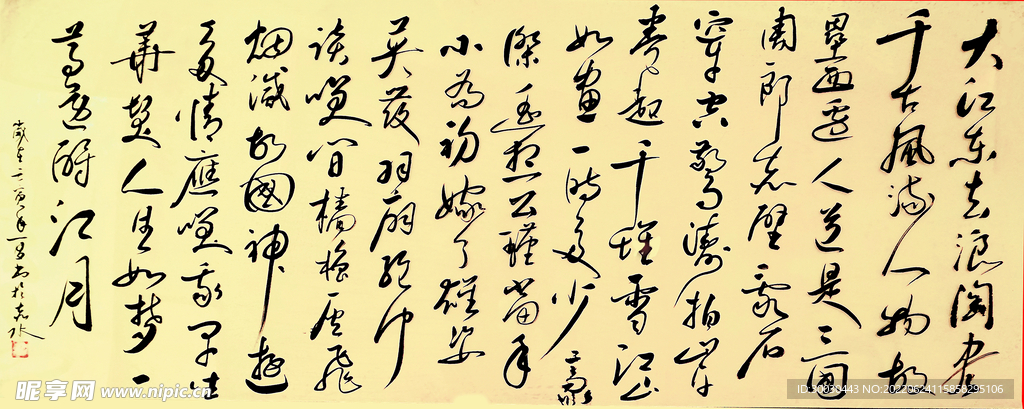 大江东去浪淘尽
千古風流人物故
壘西邊人道是三国
周郎赤壁乱石
穿空驚濤拍岸
卷起千堆雪江山
如畫一时多少豪
傑遥想公瑾当年
小乔初嫁了雄姿
英发羽扇纶巾
谈笑间樯橹灰飛
烟滅故國神遊
多情應笑我早生
華髮人生如梦一
尊还酹江月
昵享网 www.nipic.cn
ID:30030443 NO:20220624115858295106